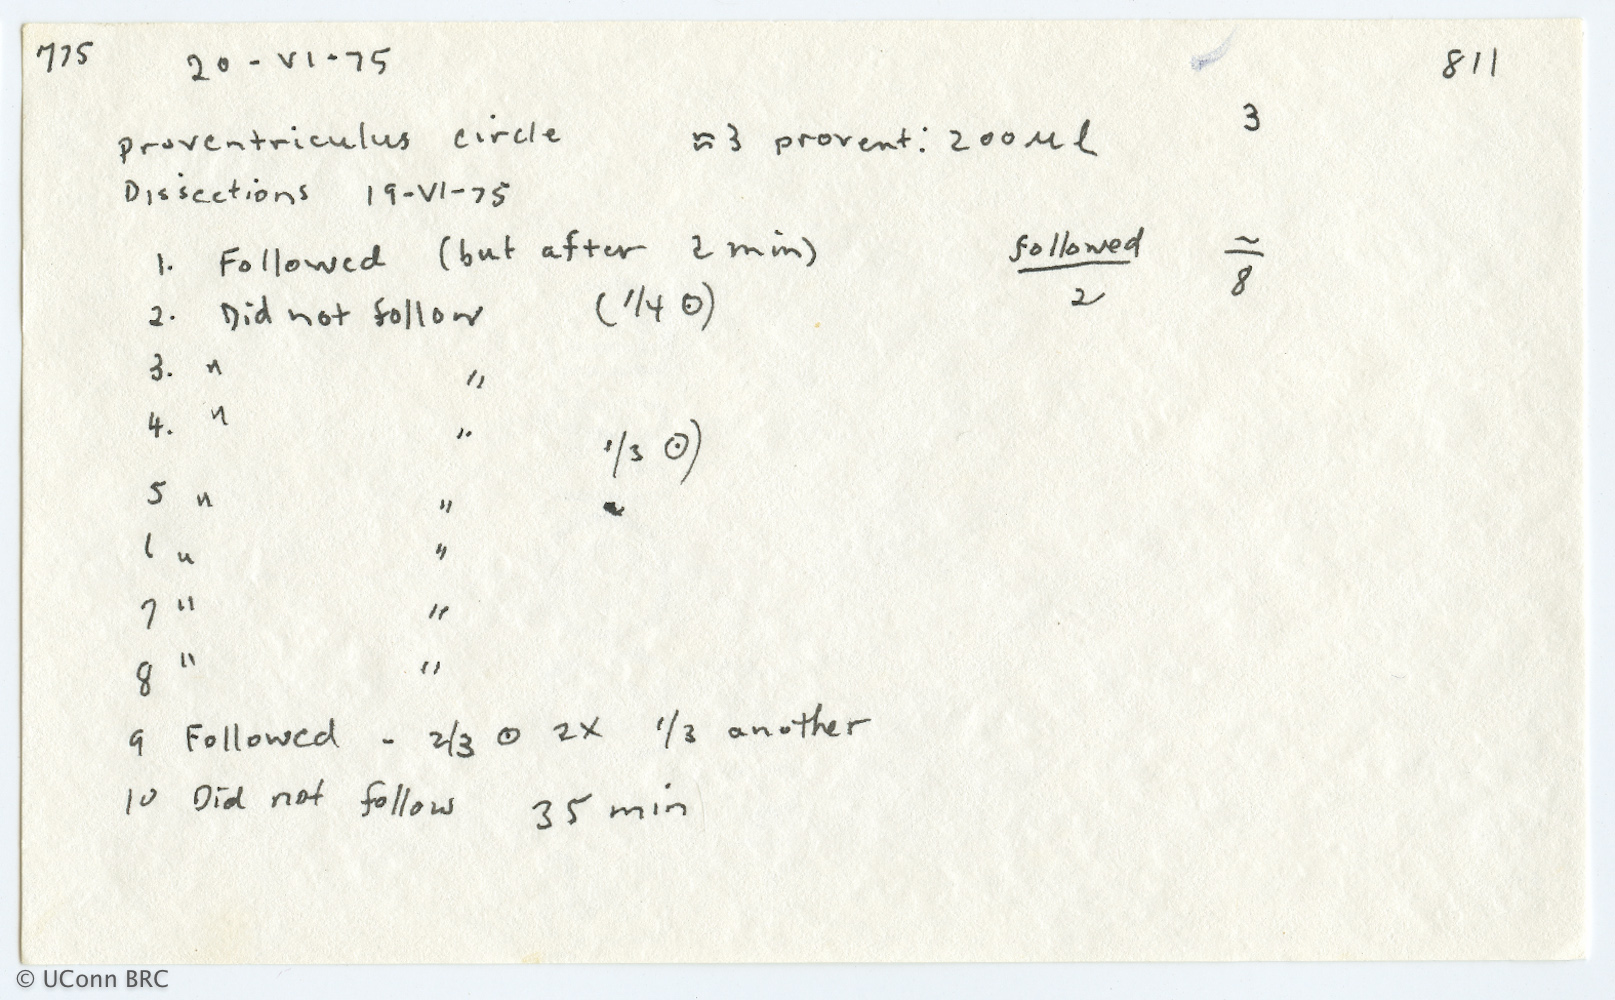 775 20-VI-75 811
proventriculus circle ≈3 provent: 200 µl 3
Dissections 19-VI-75
1. Followed (but after 2 min) followed ~
2. Did not follow (1/4 ⊙) 2 8
3. " "
4. " " 1/3 ⊙)
5 " "
6 " "
7 " "
8 " "
9 Followed - 2/3 ⊙ 2X 1/3 another
10 Did not follow 35 min
© UConn BRC